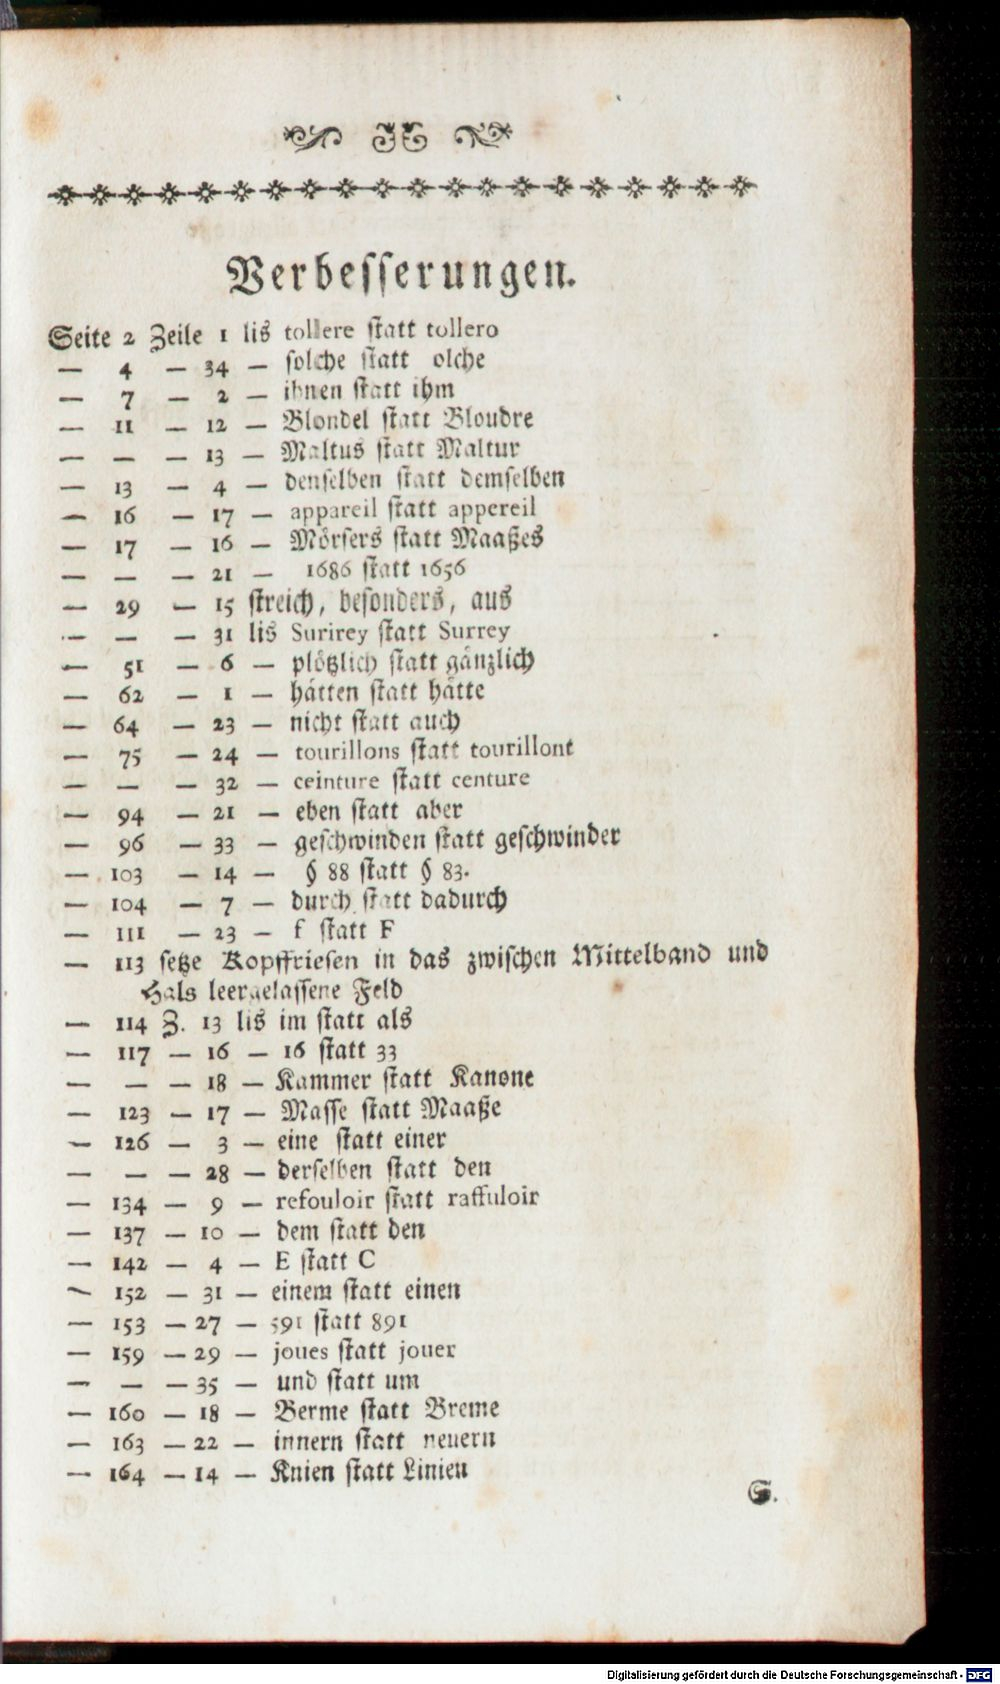 Verbesserungen.
Seite 2 Zeile 1 lis tollere statt tollero
— 4 — 34 — solche statt olche
— 7 — 2 — ihnen statt ihm
— 11 — 12 — Blondel statt Bloudre
— — — 13 — Maltus statt Maltur
— 13 — 4 — denselben statt demselben
— 16 — 17 — appareil statt appereil
— 17 — 16 — Mörsers statt Maaßes
— — — 21 — 1686 statt 1656
— 29 — 15 streich, besonders, aus
— — — 31 lis Surirey statt Surrey
— 51 — 6 — plötzlich statt gänzlich
— 62 — 1 — hätten statt hätte
— 64 — 23 — nicht statt auch
— 75 — 24 — tourillons statt tourillont
— — — 32 — ceinture statt centure
— 94 — 21 — eben statt aber
— 96 — 33 — geschwinden statt geschwinder
— 103 — 14 — § 88 statt § 83.
— 104 — 7 — durch statt dadurch
— 111 — 23 — f statt F
— 113 setze Kopffriesen in das zwischen Mittelband und
Hals leergelassene Feld
— 114 Z. 13 lis im statt als
— 117 — 16 — 16 statt 33
— — — 18 — Kammer statt Kanone
— 123 — 17 — Masse statt Maaße
— 126 — 3 — eine statt einer
— — — 28 — derselben statt den
— 134 — 9 — refouloir statt raffuloir
— 137 — 10 — dem statt den
— 142 — 4 — E statt C
— 152 — 31 — einem statt einen
— 153 — 27 — 591 statt 891
— 159 — 29 — joues statt jouer
— — — 35 — und statt um
— 160 — 18 — Berme statt Breme
— 163 — 22 — innern statt neuern
— 164 — 14 — Knien statt Linien
S.
Digitalisierung gefördert durch die Deutsche Forschungsgemeinschaft - DFG